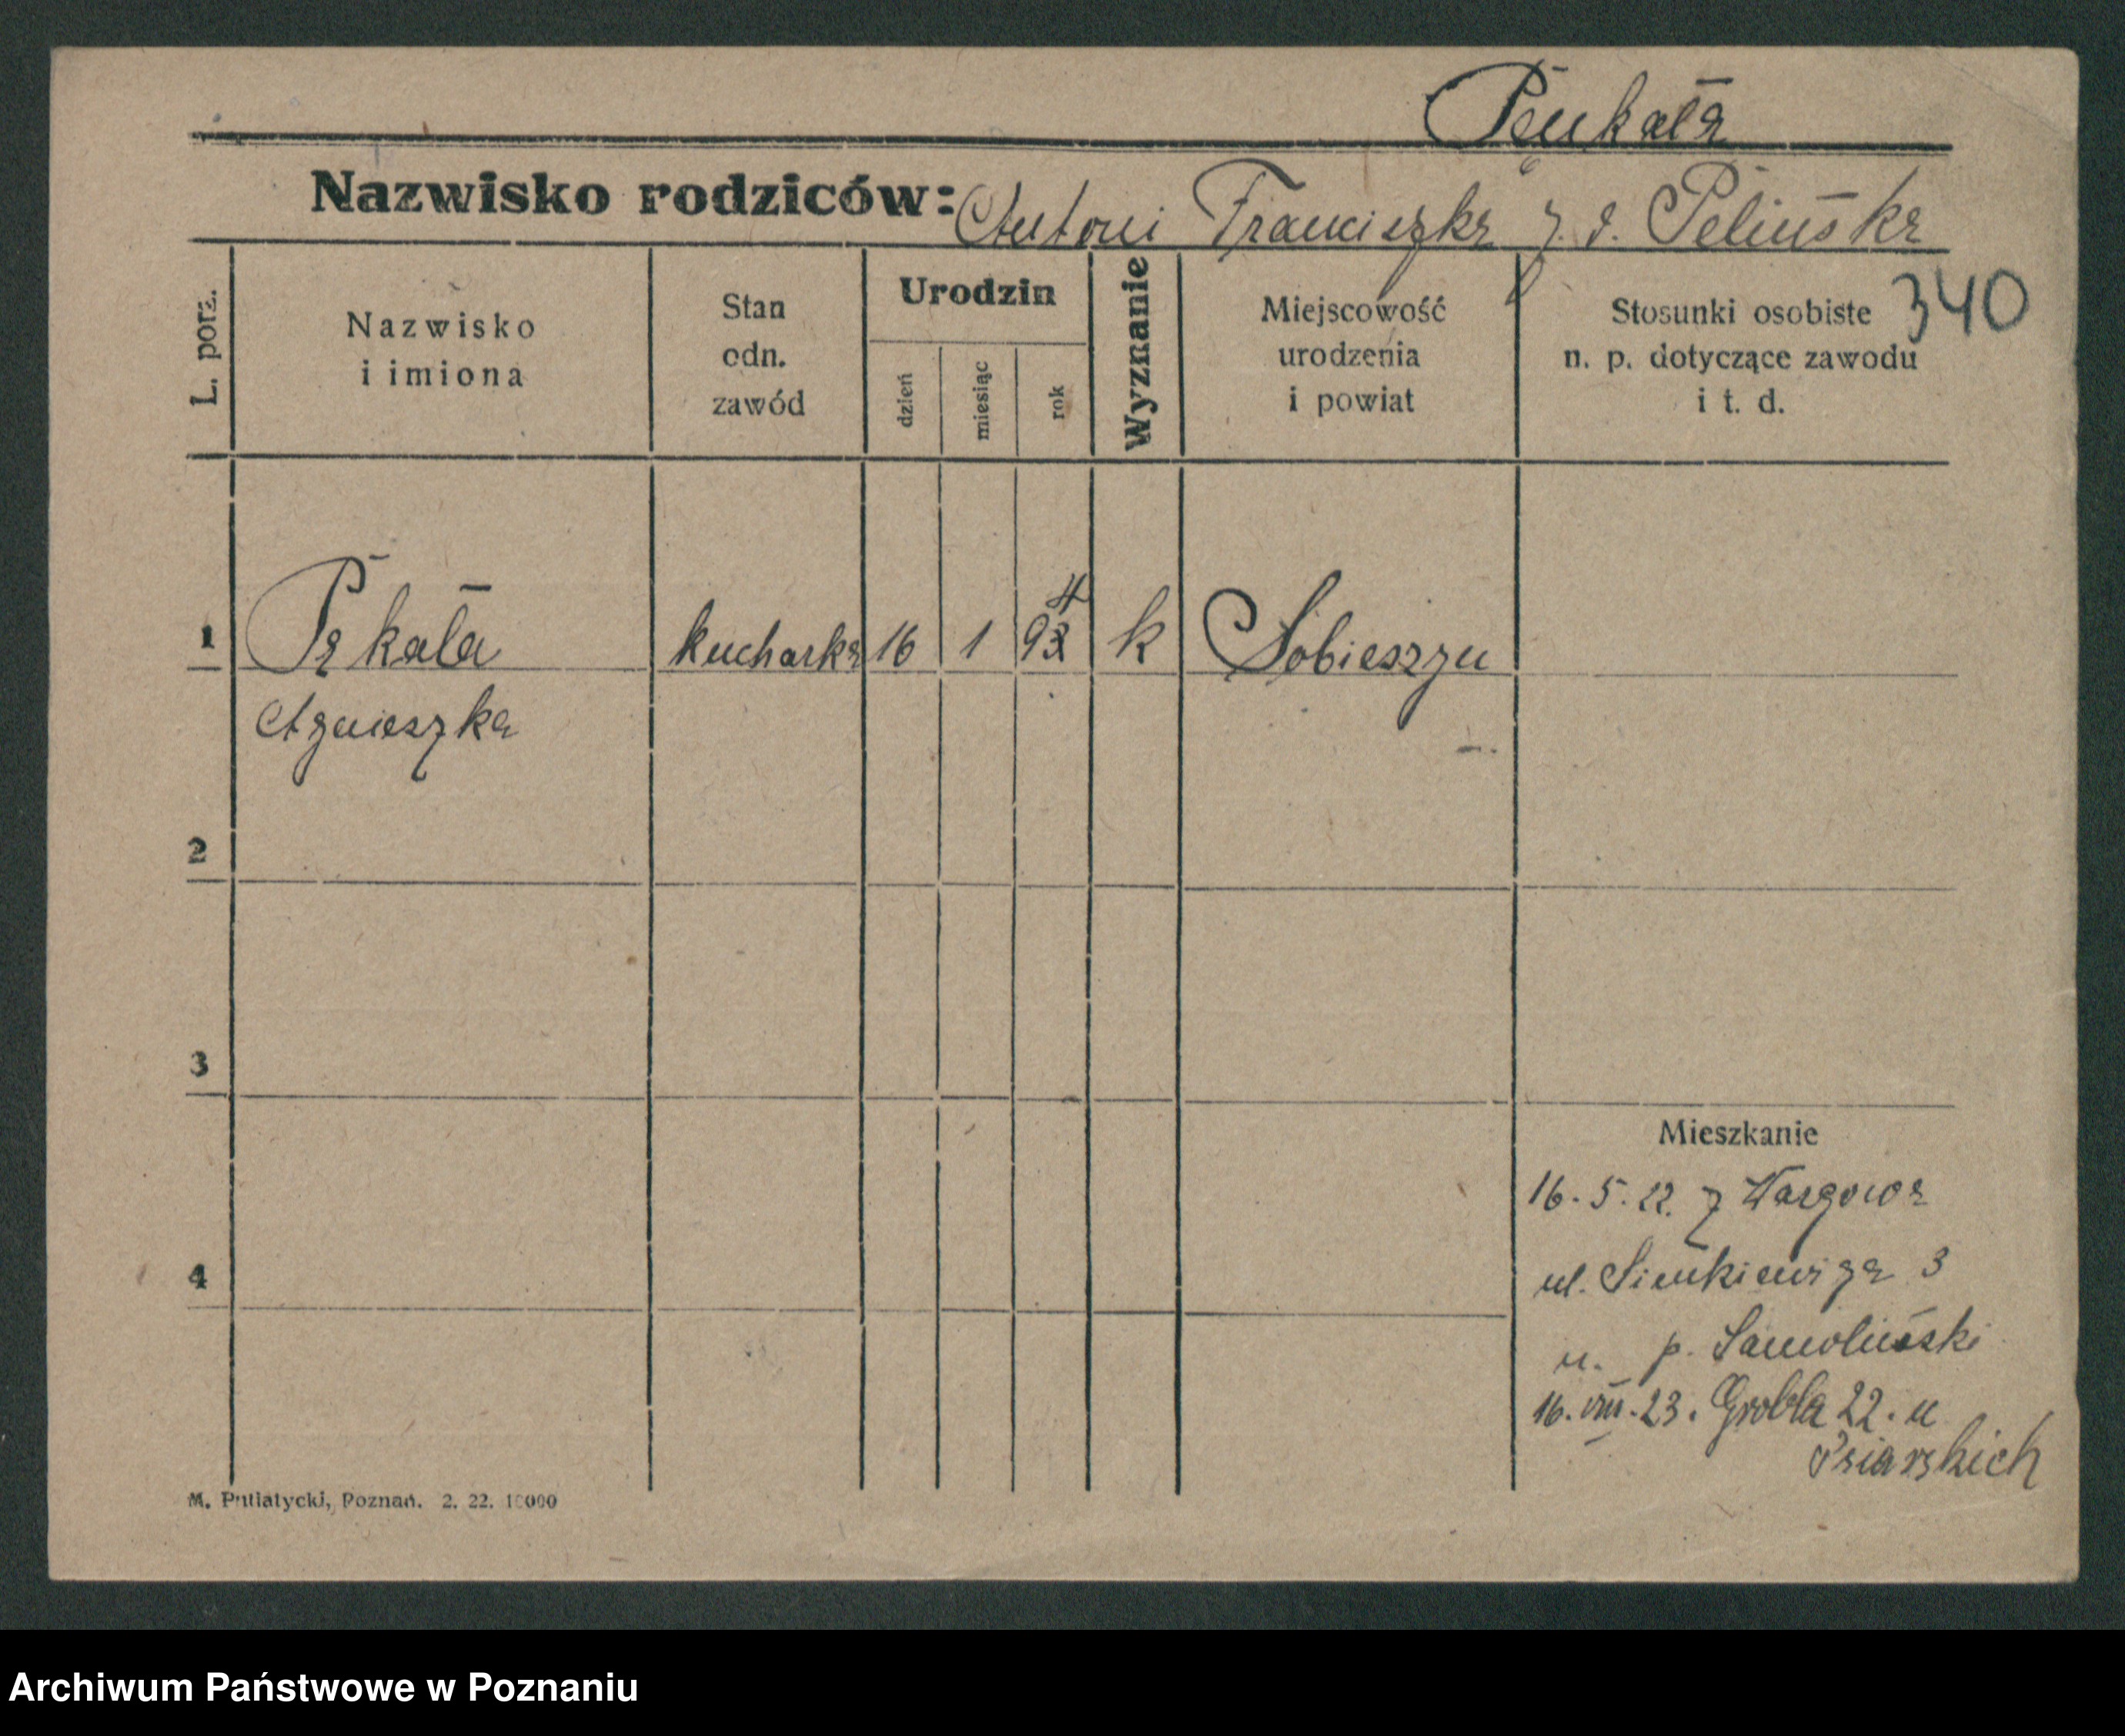 Penkała
Nazwisko rodziców: Antoni Franciszka z d. Pelińska
340
L. porz.
Nazwisko
i imiona
Stan
odn.
zawód
Urodzin
dzień
miesiąc
rok
Wyznanie
Miejscowość
urodzenia
i powiat
Stosunki osobiste
n. p. dotyczące zawodu
i t. d.
4
1 Pękała kucharka 16 1 93 k Sobieszyn
Agnieszka
2
3
Mieszkanie
16. 5. 22. z Wargowa
4
ul. Sienkiewicza 3
u. p. Samoliński
16. VIII. 23. Grobla 22. u
Psiarskich
M. Putiatycki, Poznań. 2. 22. 10000
Archiwum Państwowe w Poznaniu